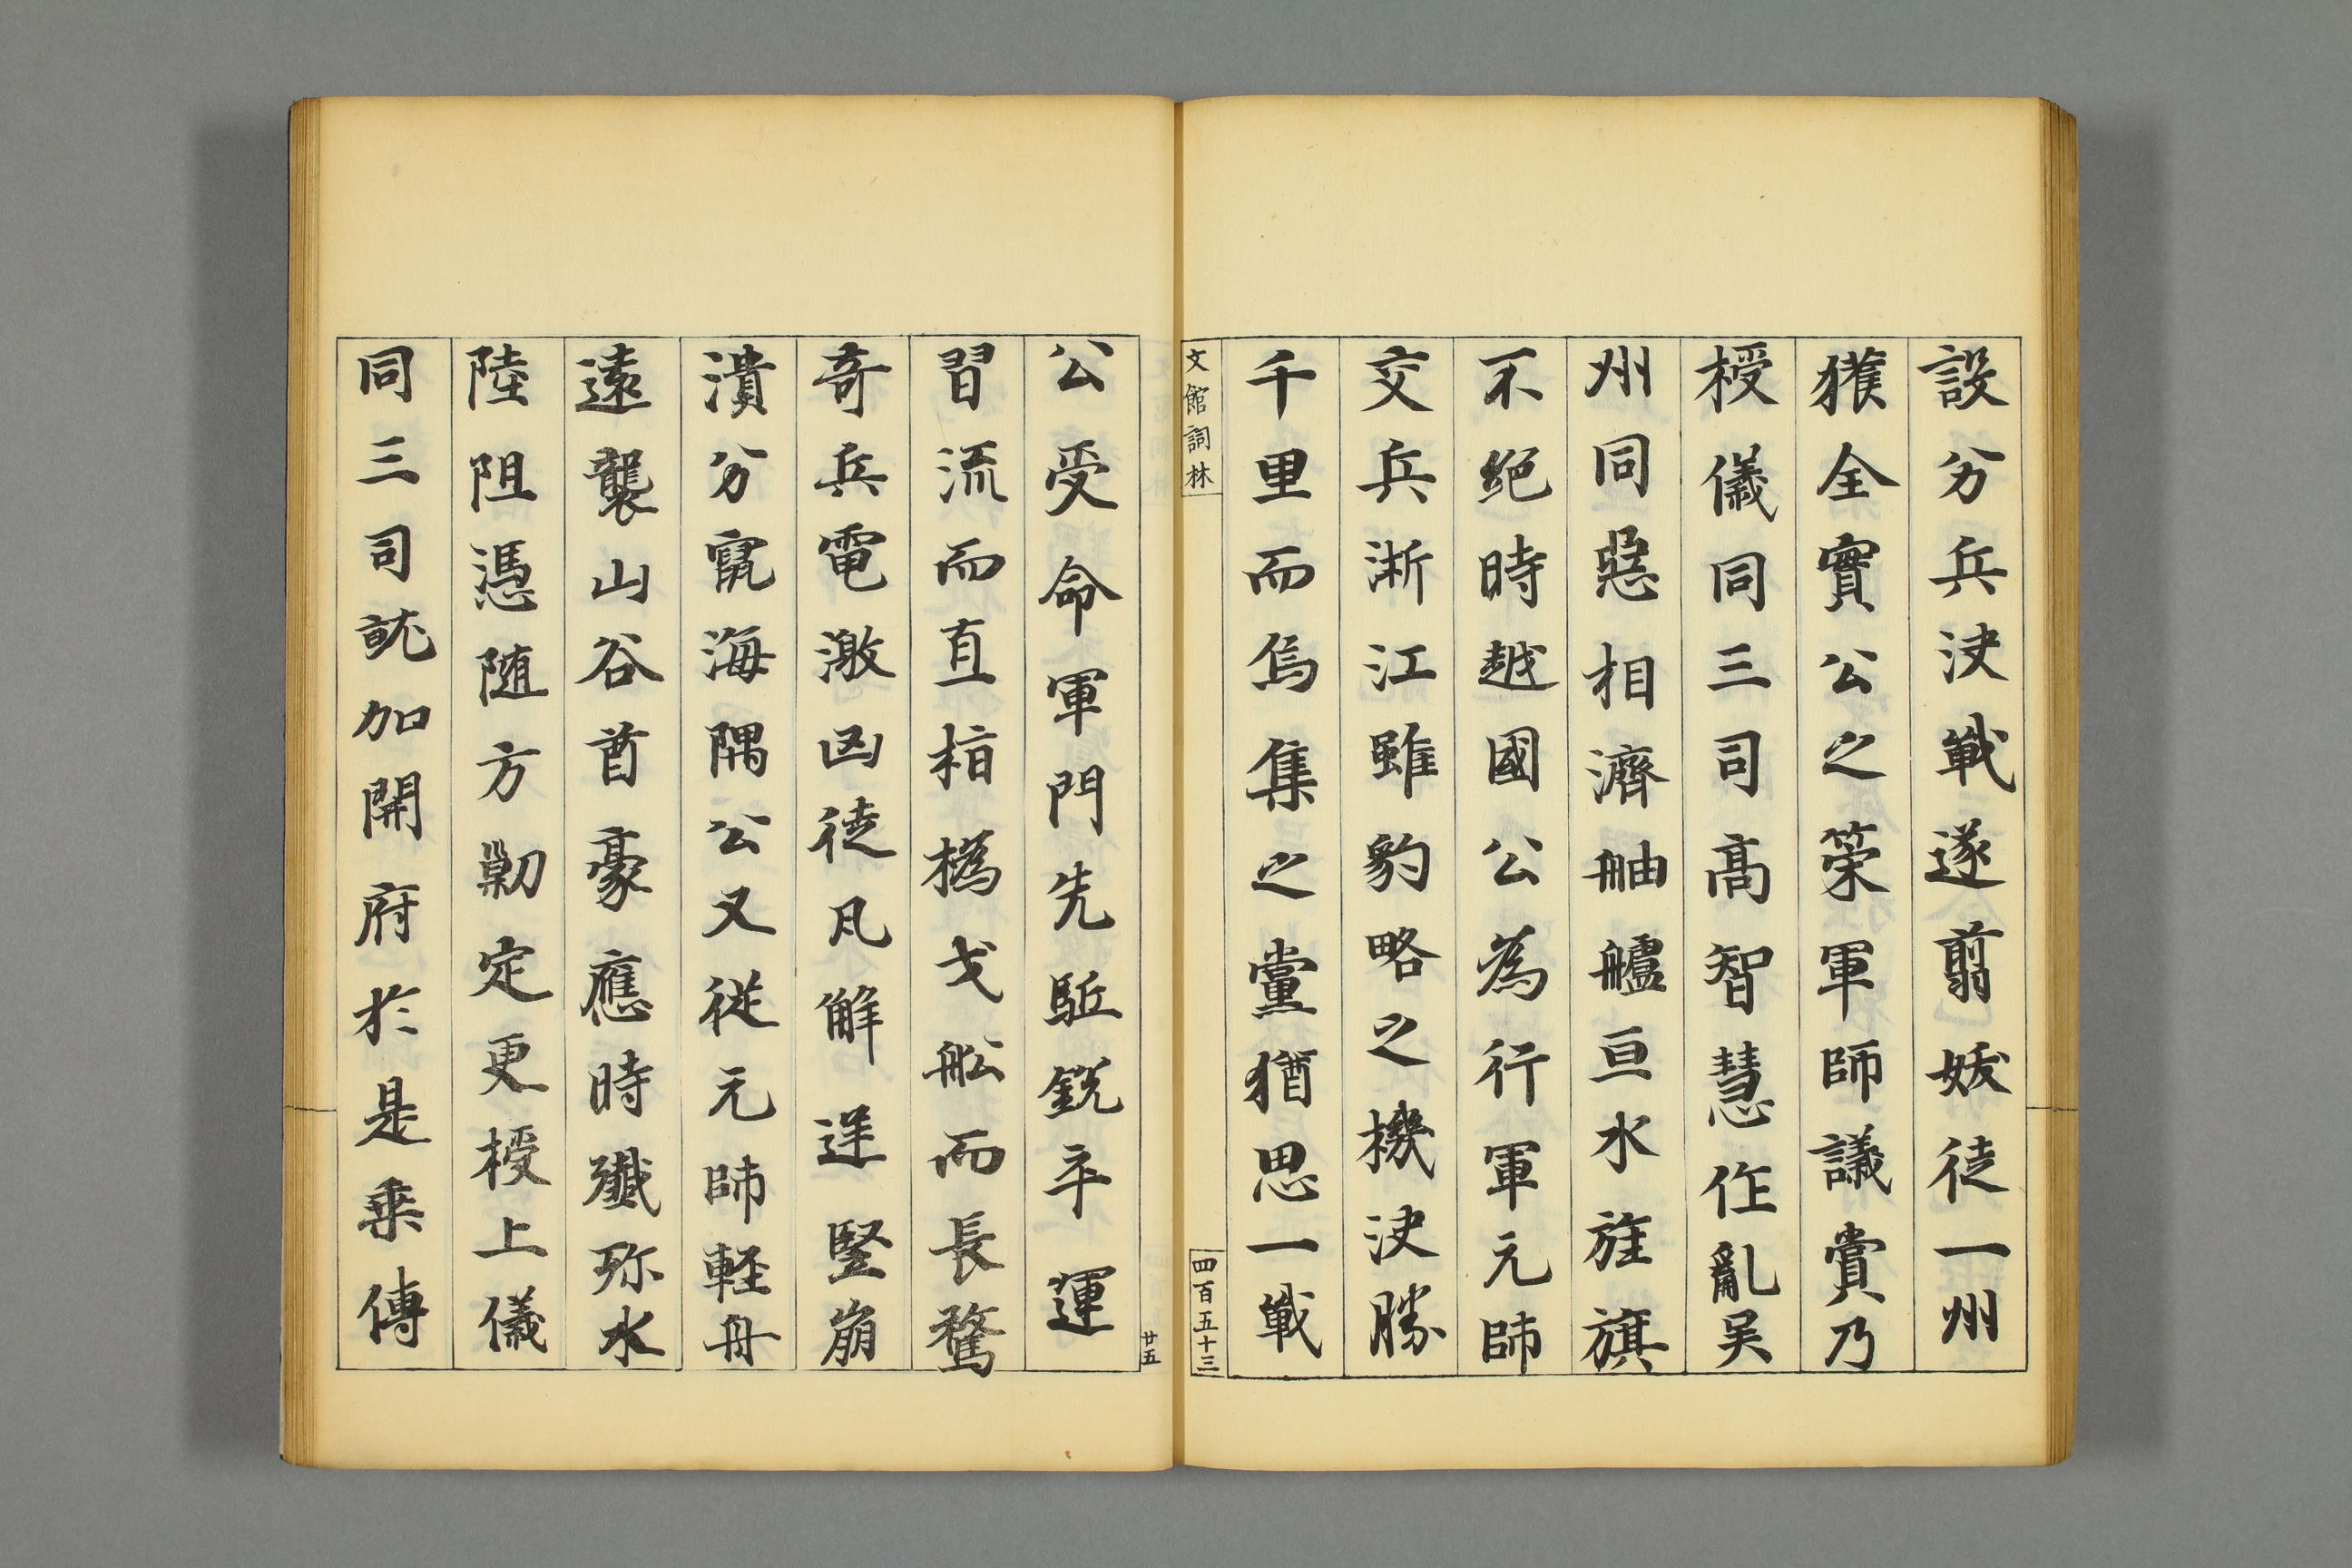 設分兵決戰遂翦妖徒一州
獲全實公之策軍師議賞乃
授儀同三司高智慧作亂吴
州同惡相濟舳艫亘水旌旗
不絕時越國公為行軍元帥
交兵淅江雖豹略之機決勝
千里而烏集之黨猶思一戰
文館詞林
四百五十三
廿五
公受命軍門先駈銳卒運
習流而直指檥戈舩而長騖
奇兵電激凶徒凡解逆豎崩
潰分竄海隅公又從元帥軽舟
遠襲山谷酋豪應時殲殄水
陸阻憑随方剿定更授上儀
同三司就加開府於是乗傳